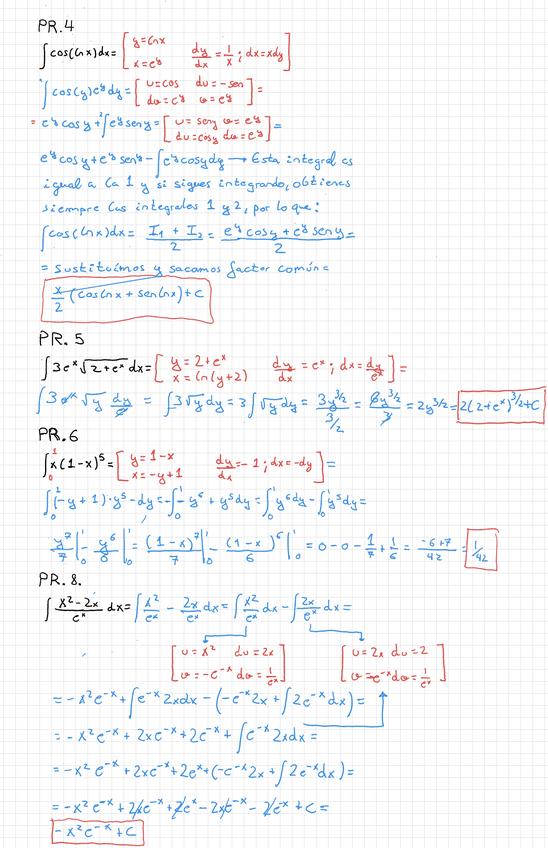 PR.4
∫cos(lnx)dx = [ y=lnx dy/dx = 1/x ; dx=xdy
x=e^y ]
∫cos(y)e^y dy = [ u=cos du=-sen
dv=e^y v=e^y ] =
= e^y cosy + ∫e^y seny = [ u=seny v=e^y
du=cosy dv=e^y ] =
e^y cosy + e^y seny - ∫e^y cosydy → Esta integral es
igual a la 1 y si sigues integrando, obtienes
siempre las integrales 1 y 2, por lo que:
∫cos(lnx)dx = (I₁ + I₂)/2 = (e^y cosy + e^y seny)/2 =
= Sustituímos y sacamos factor común =
x/2 (coslnx + senlnx) + C
PR. 5
∫3e^x √(2+e^x) dx = [ y=2+e^x dy/dx = e^x ; dx = dy/e^x
x=ln(y+2) ] =
∫3e^x √y dy/e^x = ∫3√y dy = 3∫√y dy = 3y^(3/2)/(3/2) = 6y^(3/2)/3 = 2y^(3/2) = 2(2+e^x)^(3/2)+C
PR. 6
∫₀¹ x(1-x)^5 = [ y=1-x dy/dx = -1 ; dx=-dy
x=-y+1 ] =
∫₀¹ (-y+1)·y^5 -dy = -∫₀¹ -y^6 + y^5 dy = ∫₀¹ y^6 dy - ∫₀¹ y^5 dy =
y^7/7 |₀¹ - y^6/6 |₀¹ = (1-x)^7/7 |₀¹ - (1-x)^6/6 |₀¹ = 0-0-1/7+1/6 = (-6+7)/42 = 1/42
PR. 8.
∫(x²-2x)/e^x dx = ∫x²/e^x - 2x/e^x dx = ∫x²/e^x dx - ∫2x/e^x dx =
[ u=x² du=2x [ u=2x du=2
v=-e^-x dv=1/e^x ] v=-e^-x dv=1/e^x ]
= -x²e^-x + ∫e^-x 2xdx - (-e^-x 2x + ∫2e^-x dx) =
= -x²e^-x + 2xe^-x + 2e^-x + ∫e^-x 2xdx =
= -x²e^-x + 2xe^-x + 2e^x + (-e^-x 2x + ∫2e^-x dx) =
= -x²e^-x + 2xe^-x + 2e^x - 2xe^-x - 2e^x + C =
-x²e^-x + C